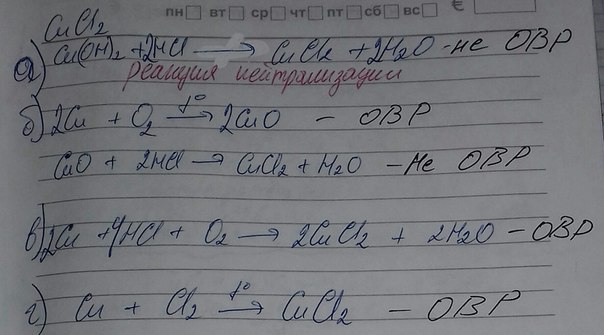 пн вт ср чт пт сб вс €
CuCl2
а) Cu(OH)2 + 2HCl → CuCl2 + 2H2O - не ОВР
реакция нейтрализации
б) 2Cu + O2 t°→ 2CuO – ОВР
CuO + 2HCl → CuCl2 + H2O – Не ОВР
в) 2Cu + 4HCl + O2 → 2CuCl2 + 2H2O – ОВР
г) Cu + Cl2 t°→ CuCl2 – ОВР